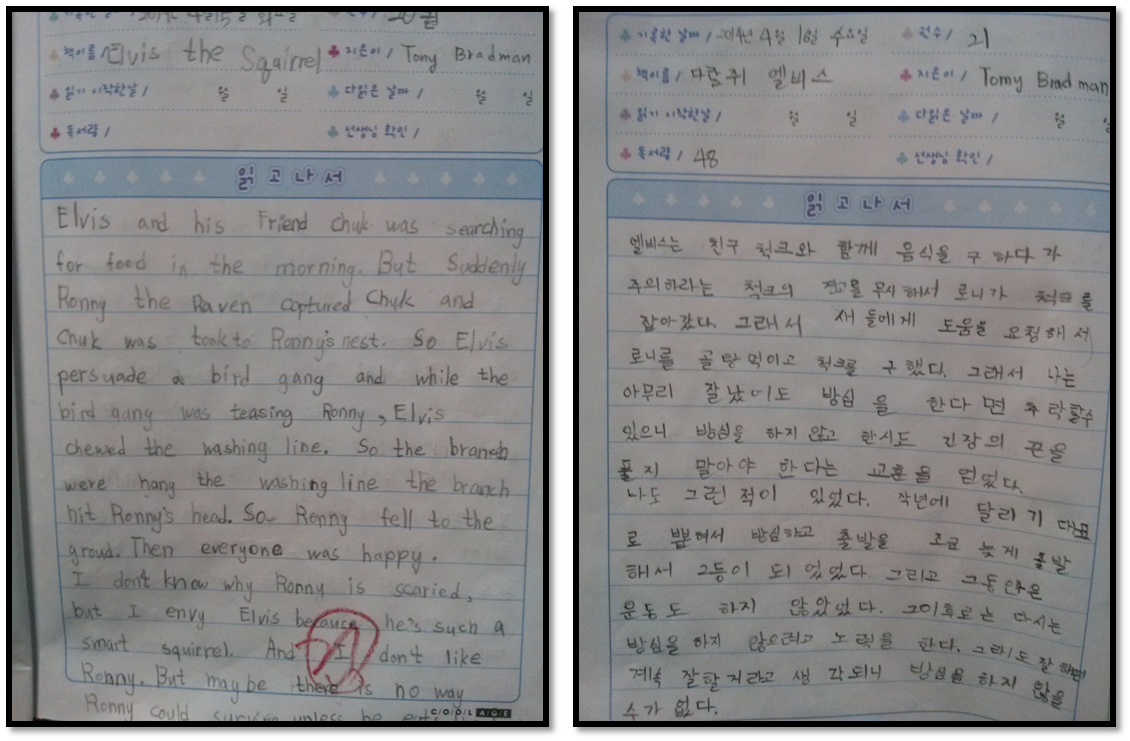 2014년 4월 15일 화요일
20권
책이름 / Elvis the Squirrel
지은이 / Tony Bradman
읽기 시작한날 / 월 일
다읽은 날짜 / 월 일
독서량 /
선생님 확인 /
읽고나서
Elvis and his Friend Chuk was searching
for food in the morning. But Suddenly
Ronny the Raven captured Chyk and
Chuk was took to Ronny's nest. So Elvis
persuade a bird gang and while the
bird gang was teasing Ronny, Elvis
chewed the washing line. So the branch
were hang the washing line the branch
hit Ronny's head. So Ronny fell to the
groud. Then everyone was happy.
I don't know why Ronny is scaried,
but I envy Elvis because he's such a
smart squirrel. And I don't like
Ronny. But maybe there is no way
Ronny could survive unless he
COOLAGE
기록한 날짜 / 2014년 4월 16일 수요일
권수 / 21
책이름 / 다람쥐 엘비스
지은이 / Tomy Bradman
읽기 시작한날 / 월 일
다읽은 날짜 / 월 일
독서량 / 48
선생님 확인 /
읽고나서
엘비스는 친구 척크와 함께 음식을 구하다가
주의하라는 척크의 경고를 무시해서 로니가 척크를
잡아갔다. 그래서 새들에게 도움을 요청해서
로니를 골탕먹이고 척크를 구했다. 그래서 나는
아무리 잘났어도 방심을 한다면 추락할수
있으니 방심을 하지 않고 한시도 긴장의 끈을
풀지 말아야 한다는 교훈을 얻었다.
나도 그런 적이 있었다. 작년에 달리기 대표
로 뽑혀서 방심하고 출발을 조금 늦게 출발
해서 2등이 되었었다 그리고 그동안은
운동도 하지 않았었다. 그이후로는 다시는
방심을 하지 않으려고 노력을 한다. 그래도 잘하면
계속 잘할거라고 생각되니 방심을 하지 않을
수가 없다.